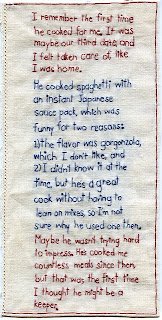 I remember the first time
he cooked for me. It was
maybe our third date and
I felt taken care of, like
I was home.
He cooked spaghetti with
an instant Japanese
sauce pack, which was
funny for two reasons:
1) the flavor was gorgonzola,
which I don't like, and
2) I didn't know it at the
time, but he's a great
cook without having to
lean on mixes, so I'm not
sure why he used one then.
Maybe he wasn't trying hard
to impress. He's cooked me
countless meals since then,
but that was the first time
I thought he might be a
keeper.